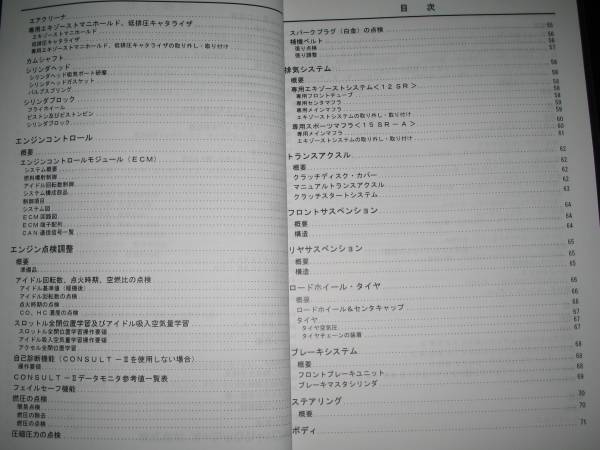 エアクリーナ
専用エキゾーストマニホールド、低排圧キャタライザ
エキゾーストマニホールド
低排圧キャタライザ
専用エキゾーストマニホールド、低排圧キャタライザの取り外し・取り付け
カムシャフト
シリンダヘッド
シリンダヘッド吸気ポート研摩
シリンダヘッドガスケット
バルブスプリング
シリンダブロック
フライホイール
ピストン及びピストンピン
シリンダブロック
エンジンコントロール
概要
エンジンコントロールモジュール(ECM)
システム概要
燃料噴射制御
アイドル回転数制御
システム構成部品
制御項目
システム図
ECM回路図
ECM端子配列
CAN通信信号一覧
エンジン点検調整
概要
準備品
アイドル回転数、点火時期、空燃比の点検
アイドル基準値(暖機後)
アイドル回転数の点検
点火時期の点検
CO、HC濃度の点検
スロットル全閉位置学習及びアイドル吸入空気量学習
スロットル全閉位置学習操作要領
アイドル吸入空気量学習操作要領
アクセル全閉位置学習
自己診断機能(CONSULT-Ⅱを使用しない場合)
操作要領
CONSULT-Ⅱデータモニタ参考値一覧表
フェイルセーフ機能
燃圧の点検
燃圧の除去
燃圧の点検
圧縮圧力の点検
目 次
スパークプラグ(白金)の点検 55
補機ベルト 56
張り点検 56
張り調整 57
排気システム 58
概要 58
専用エキゾーストシステム<12SR> 58
専用フロントチューブ 58
専用センタマフラ 58
専用メインマフラ 59
エキゾーストシステムの取り外し・取り付け 59
専用スポーツマフラ<15SR-A> 60
専用メインマフラ 60
エキゾーストシステムの取り外し・取り付け 61
トランスアクスル 62
概要 62
クラッチディスク・カバー 62
マニュアルトランスアクスル 62
クラッチスタートシステム 63
フロントサスペンション 64
概要 64
構造 64
リヤサスペンション 65
概要 65
構造 65
ロードホイール・タイヤ 66
概要 66
ロードホイール&センタキャップ 66
タイヤ 67
タイヤ空気圧 67
タイヤチェーンの装着 67
ブレーキシステム 68
概要 68
フロントブレーキユニット 68
ブレーキマスタシリンダ 69
ステアリング 70
概要 70
ボディ 71